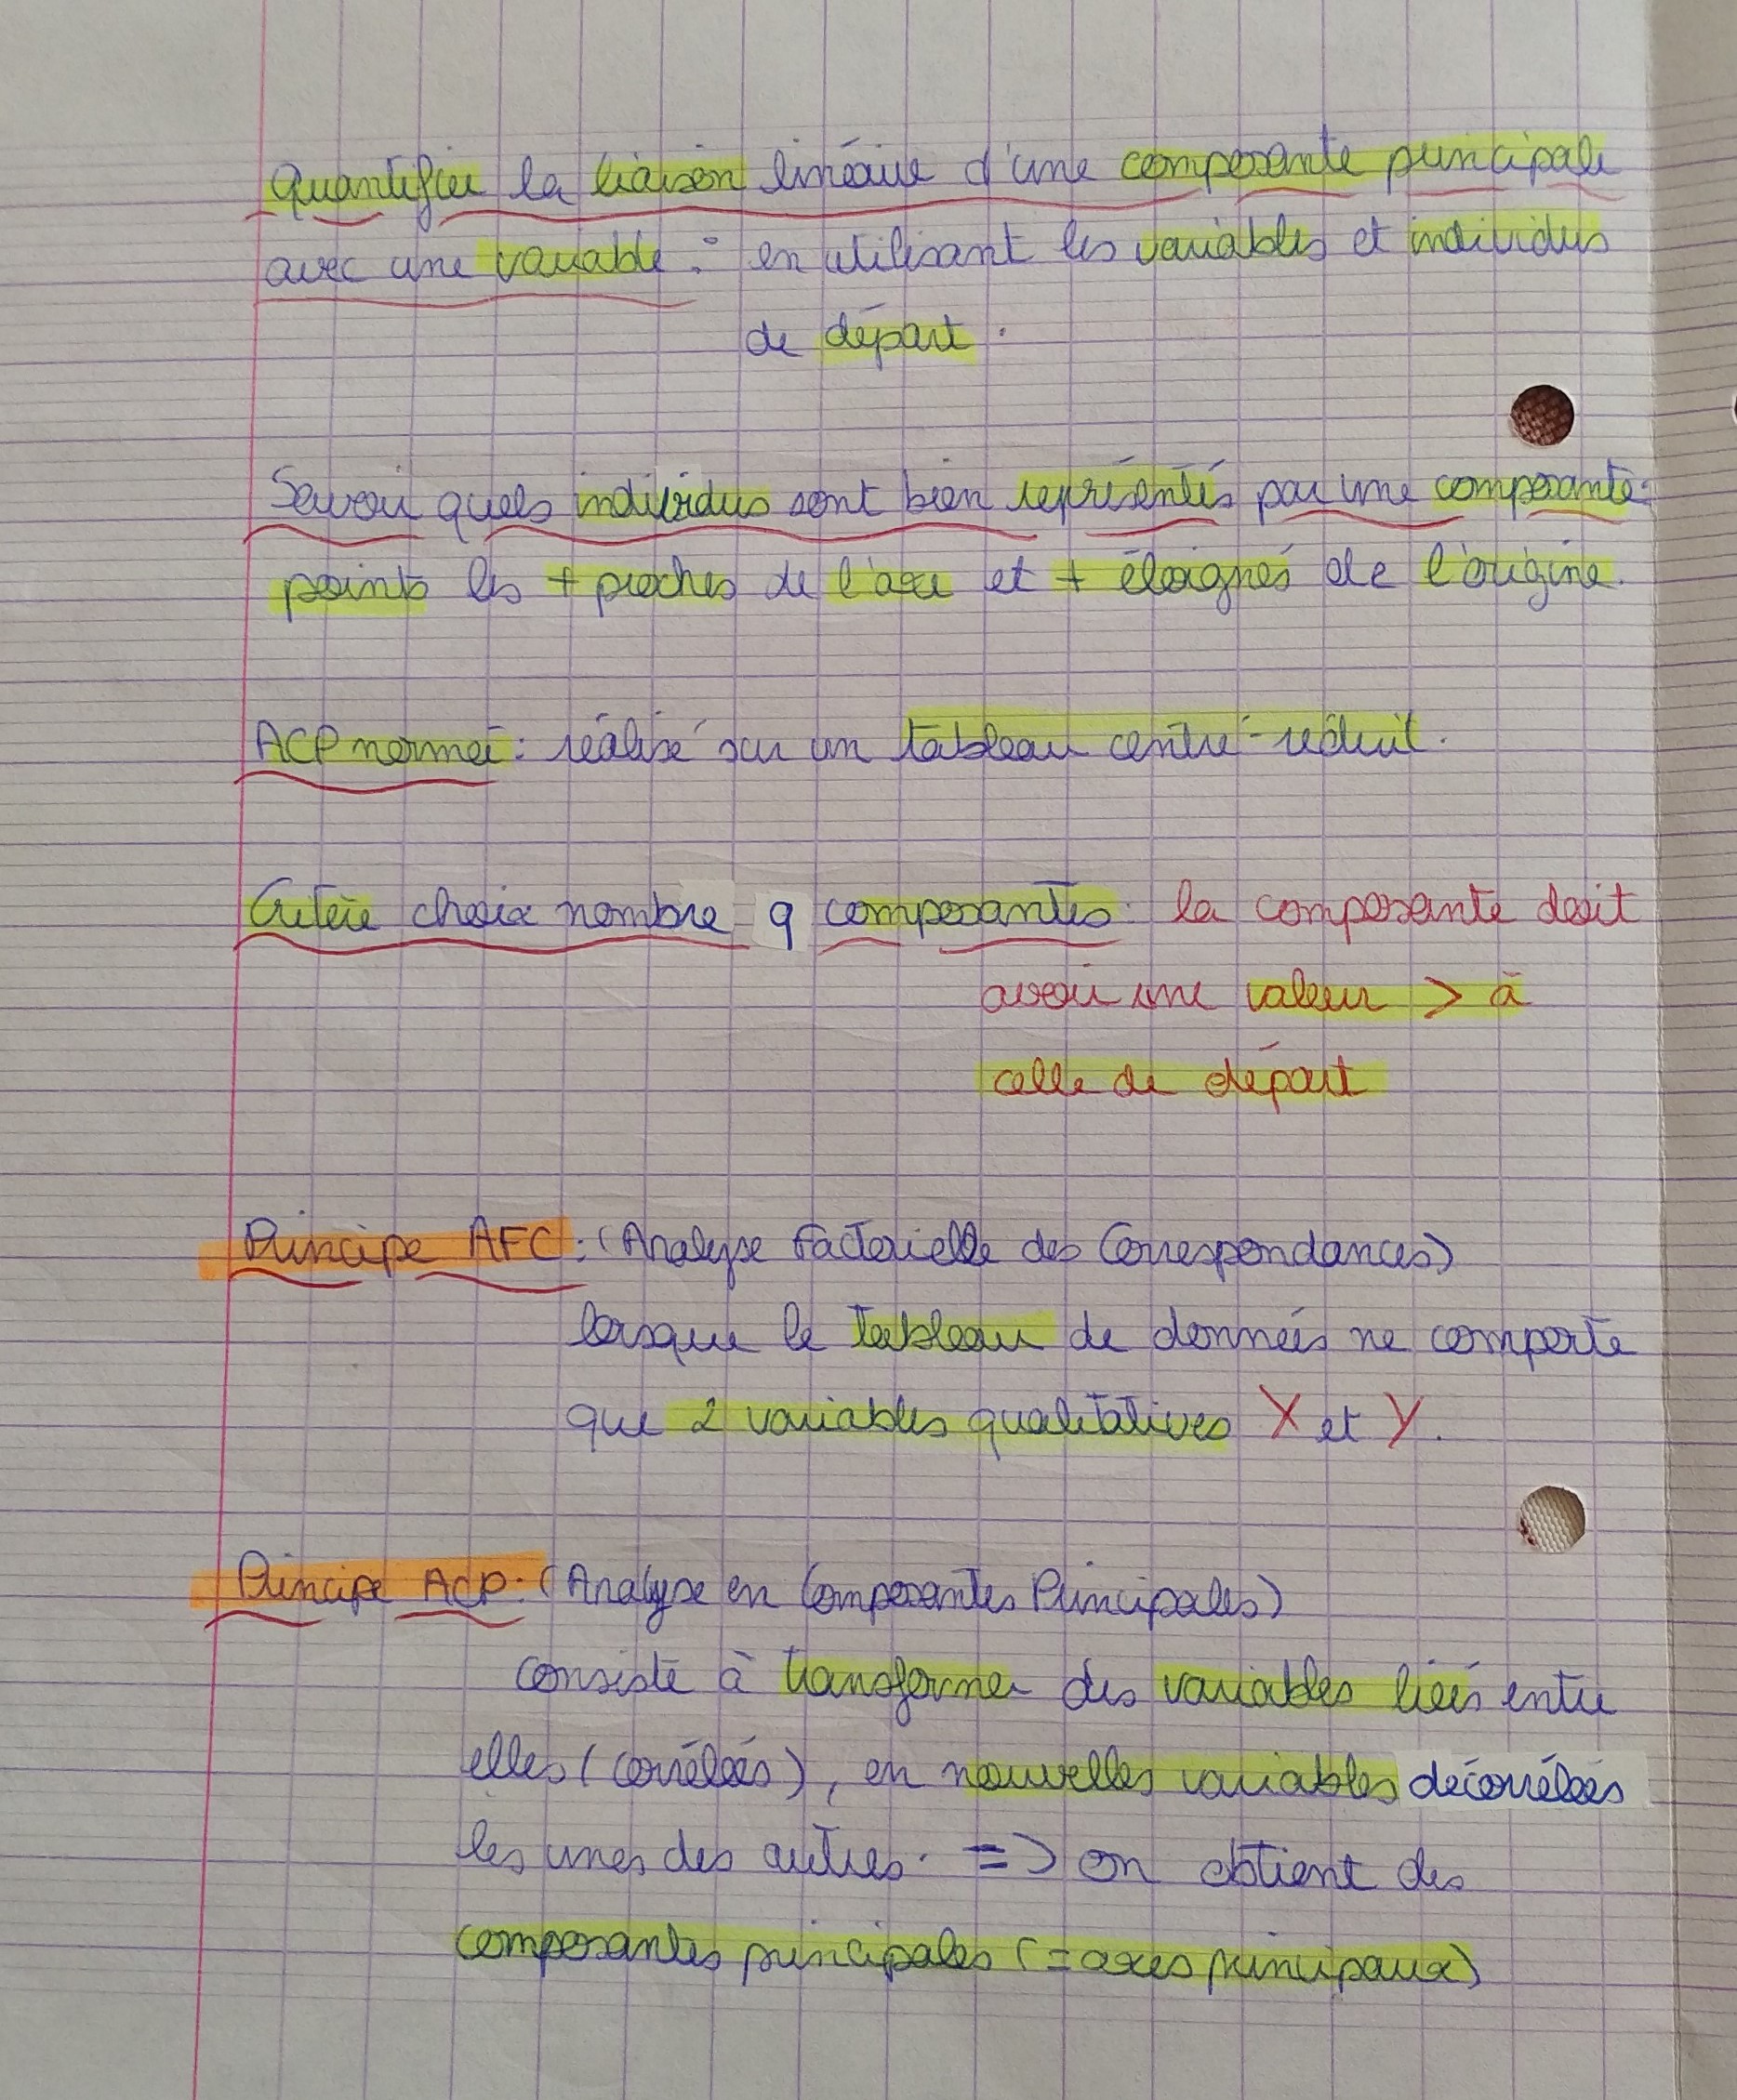 Quantifier la liaison linéaire d'une composante principale
avec une variable : en utilisant les variables et individus
de départ.
Savoir quels individus sont bien représentés par une composante :
points les + proches de l'axe et + éloignés de l'origine.
ACP normée : réalisé sur un tableau centré-réduit.
Critère choix nombre q composantes : la composante doit
avoir une valeur > à
celle de départ
Principe AFC : (Analyse Factorielle des Correspondances)
lorsque le tableau de données ne comporte
que 2 variables qualitatives X et Y.
Principe ACP : (Analyse en Composantes Principales)
consiste à transformer des variables liées entre
elles (corrélées), en nouvelles variables décorrélées
les unes des autres. => on obtient des
composantes principales (= axes principaux)